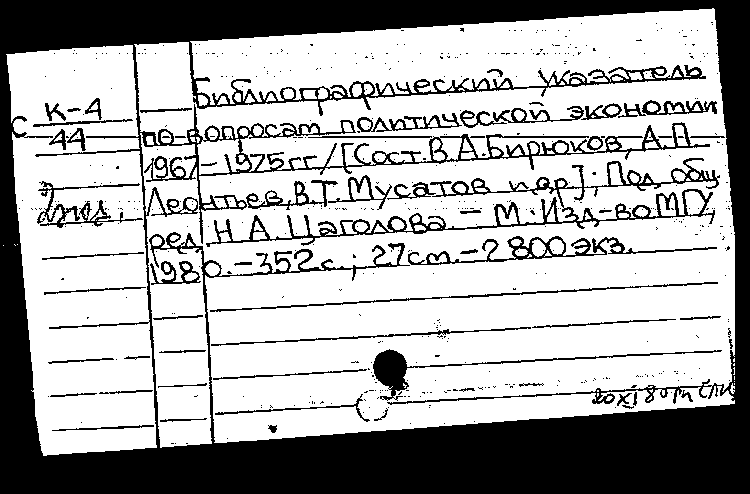 Библиографический указатель
С К-4
44
по вопросам политической экономии
1967-1975гг/[Сост.В.А.Бирюков, А.П.
Леонтьев, В.Т.Мусатов и др]; Под общ
ред. Н.А.Цаголова. - М.: Изд-во МГУ,
1980. - 352с.; 27см. - 2800экз.
20 XI 80